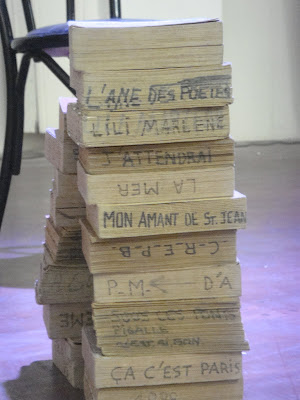 L'AME DES POETES
LILI MARLENE
J'ATTENDRAI
LA MER
MON AMANT DE ST. JEAN
C-R-E-P-B-
P-M- D'A
SOUS LES PONTS
PIGALLE
ÇA C'EST PARIS